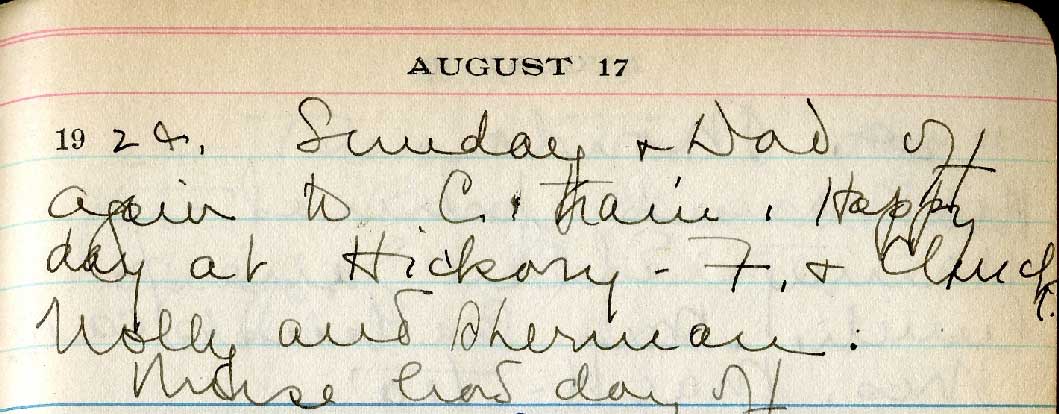 AUGUST 17
1924. Sunday & Dad off
again to C. train. Happy
day at Hickory - F. & Chuck.
Molly and Sherman.
Nurse had day off